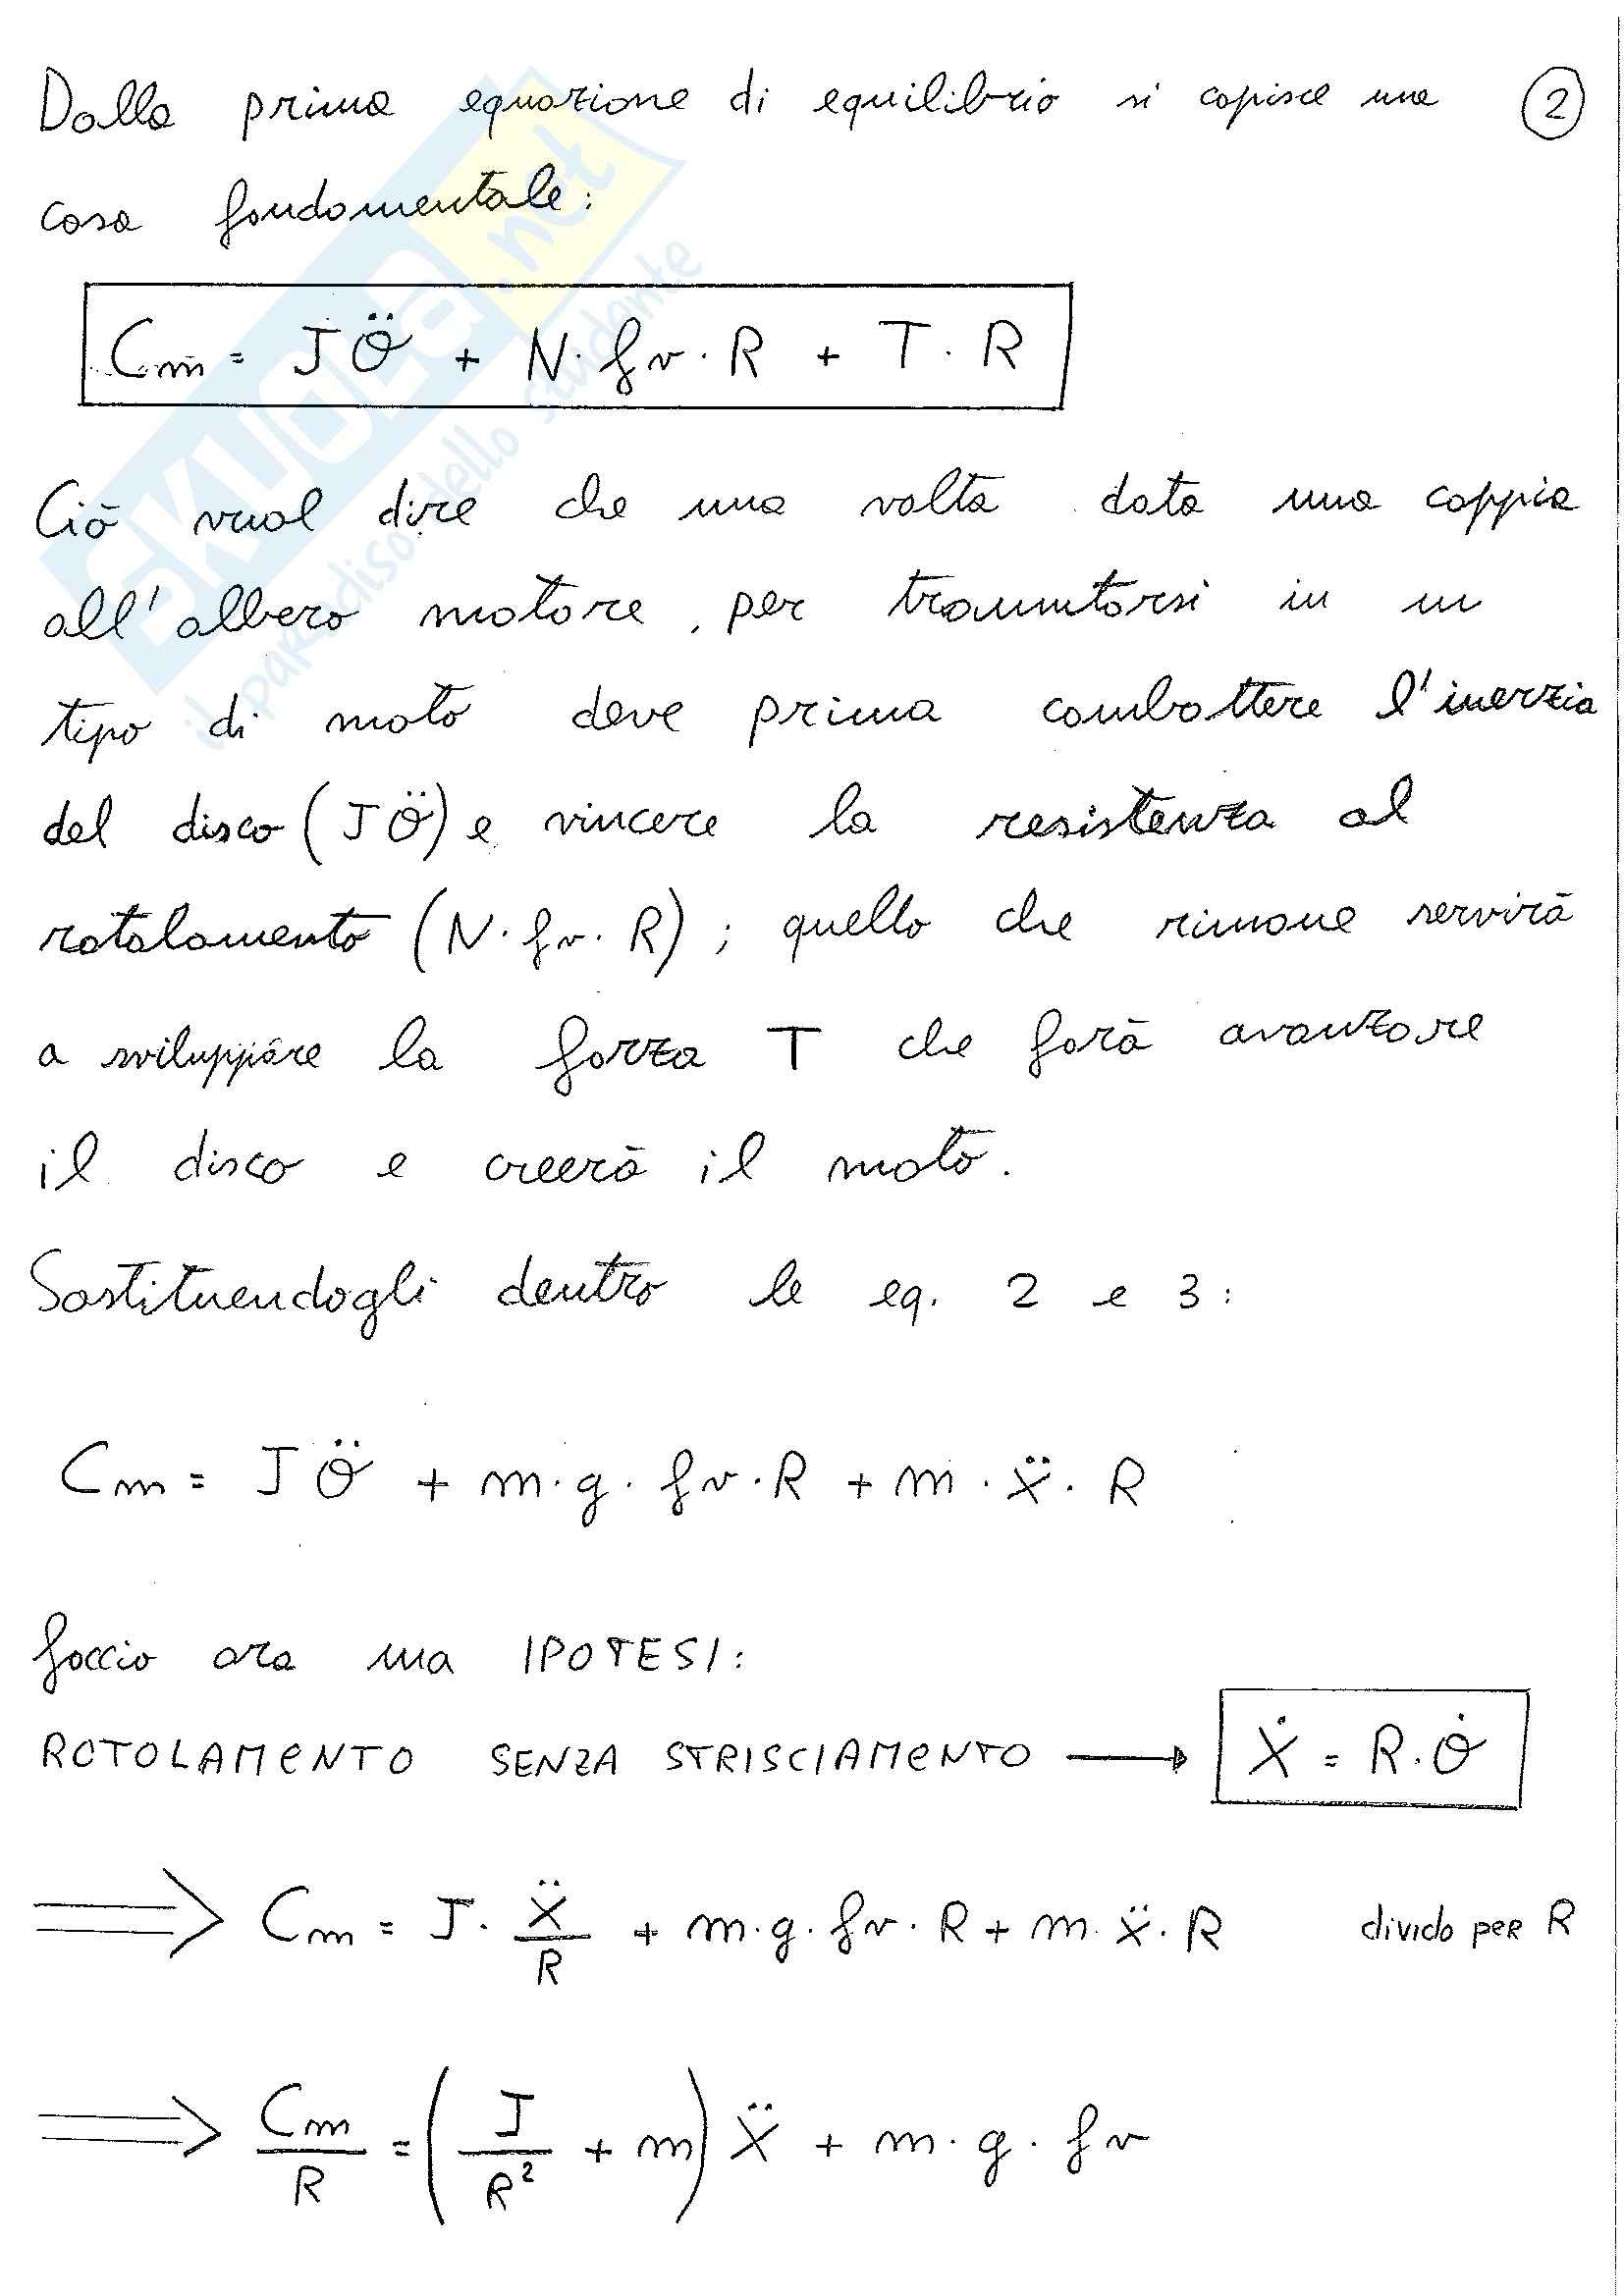 Dalla prima equazione di equilibrio si capisce una ②
cosa fondamentale:
Cm = Jθ̈ + N·fv·R + T·R
Ciò vuol dire che una volta data una coppia
all'albero motore, per tramutarsi in un
tipo di moto deve prima combattere l'inerzia
del disco (Jθ̈) e vincere la resistenza al
rotolamento (N·fv·R); quello che rimane servirà
a sviluppare la forza T che farà avanzare
il disco e creerà il moto.
Sostituendogli dentro le eq. 2 e 3:
Cm = Jθ̈ + m·g·fv·R + m·ẍ·R
faccio ora una IPOTESI:
ROTOLAMENTO SENZA STRISCIAMENTO → Ẋ = R·θ̇
⇒ Cm = J·Ẍ/R + m·g·fv·R + m·ẍ·R divido per R
⇒ Cm/R = (J/R² + m)Ẍ + m·g·fv
SKUOLA.net
il paradiso dello studente